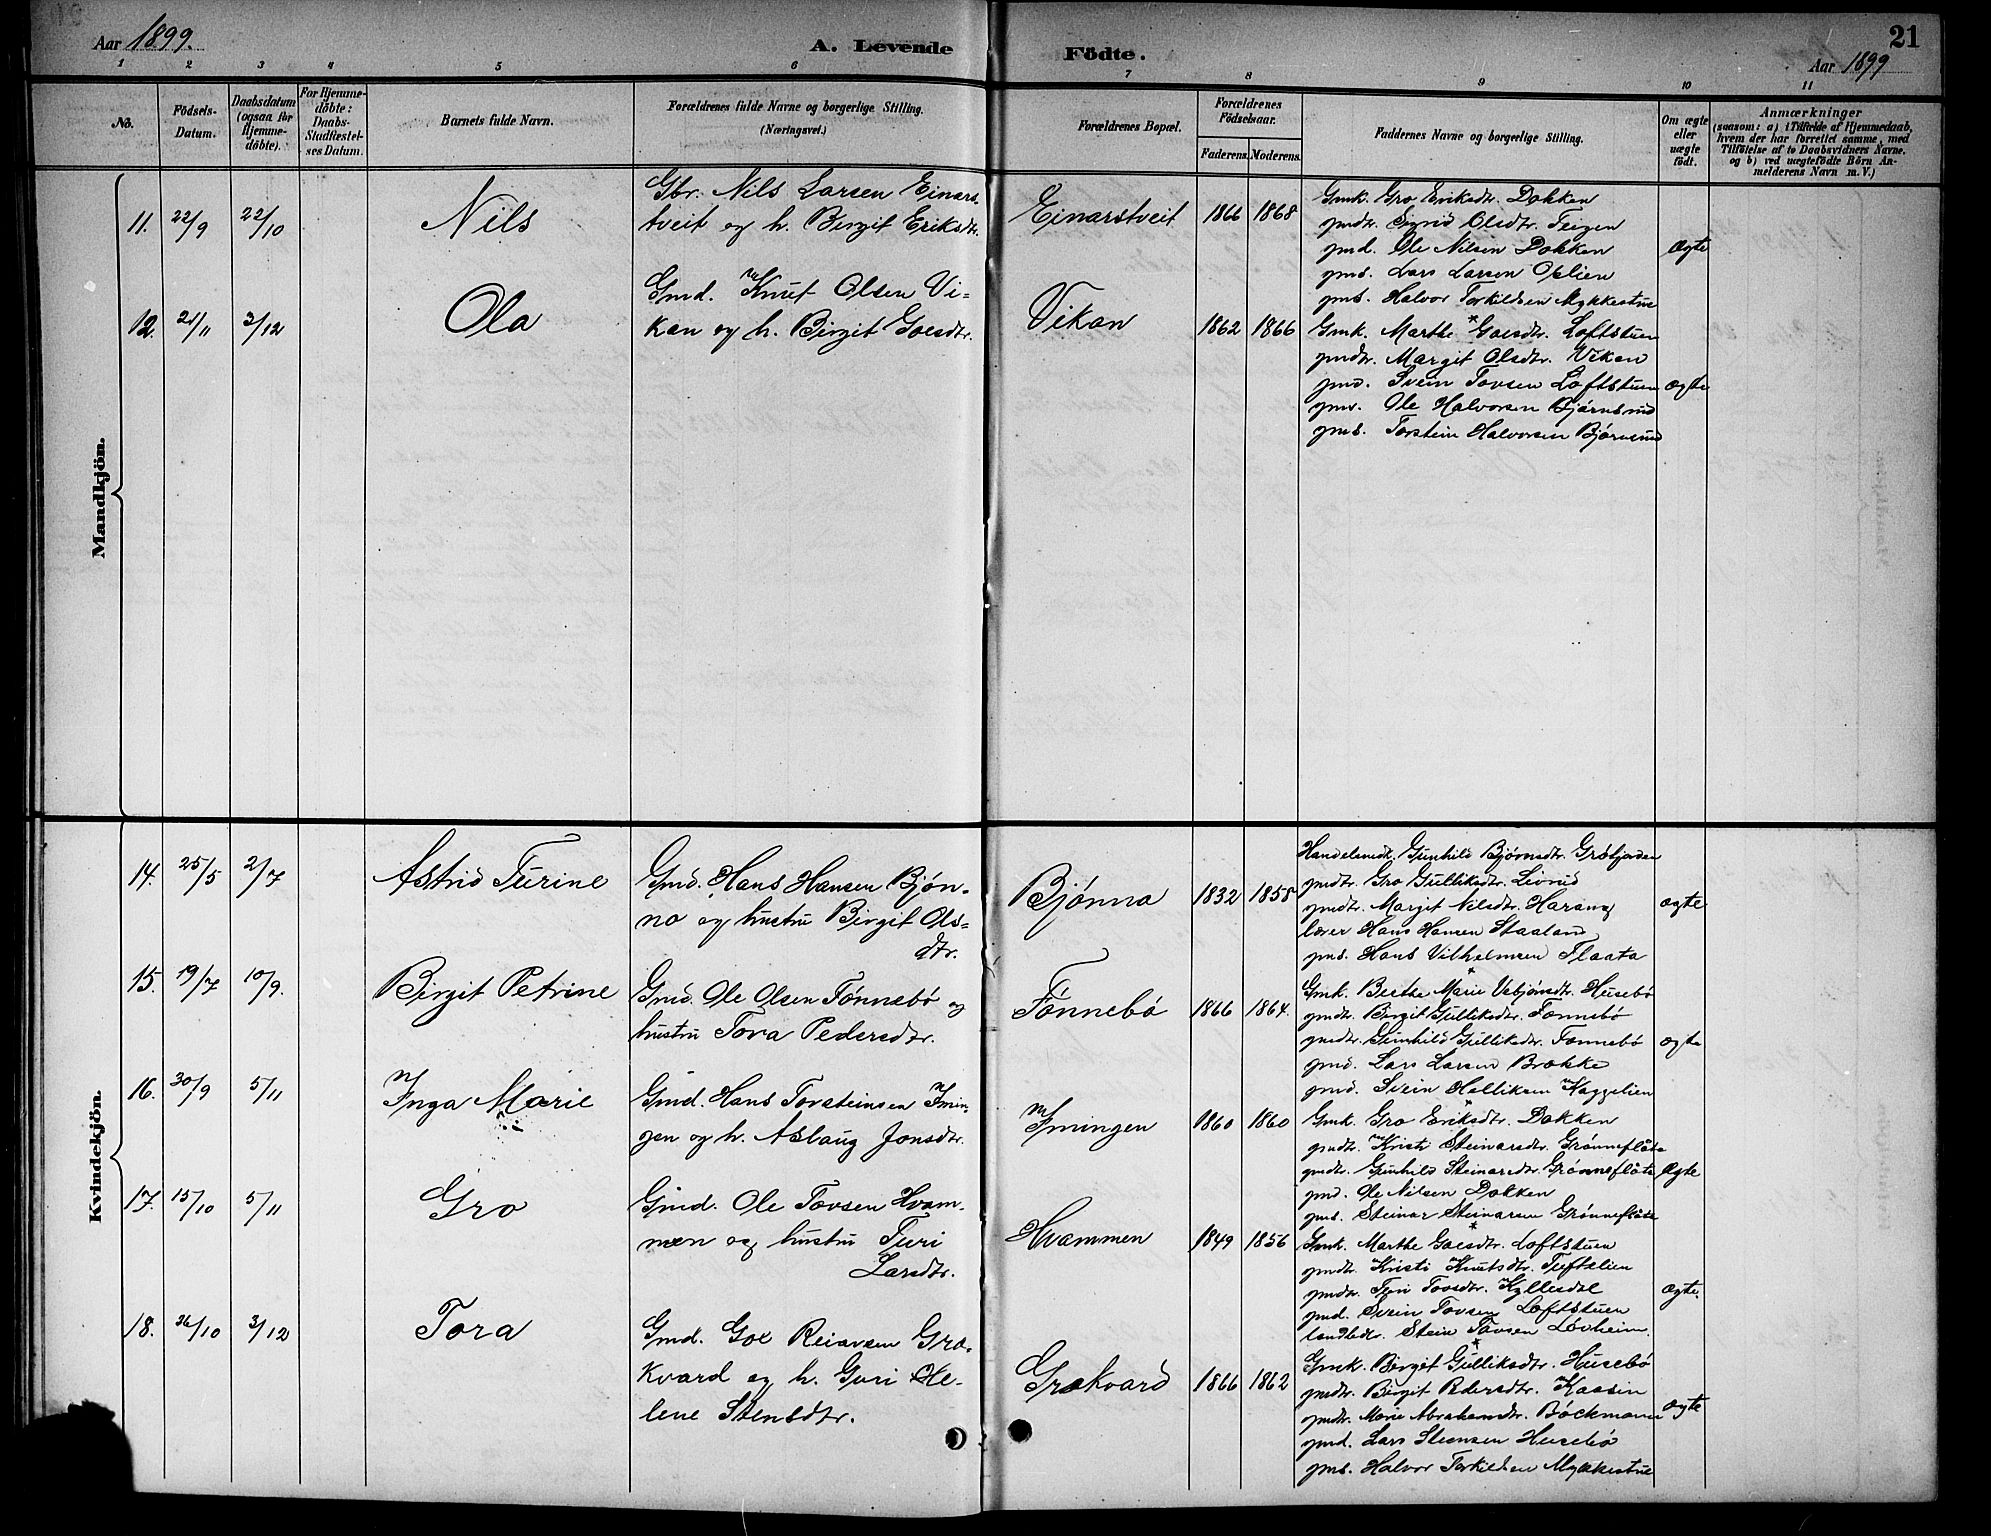 Aar 1899.
A. Levende
Födte.
21
Aar 1899
1 2 3 4 5 6 7 8 9 10 11
No.
Födsels-
Datum.
Daabsdatum
(ogsaa for
Hjemme-
döbte).
For Hjemme-
döbte:
Daabs-
Stadfæstel-
ses Datum.
Barnets fulde Navn.
Forældrenes fulde Navne og borgerlige Stilling.
(Næringsvei.)
Forældrenes Bopæl.
Forældrenes
Födselsaar.
Faderens. Moderens.
Faddernes Navne og borgerlige Stilling.
Om ægte
eller
uægte
födt.
Anmærkninger
(saasom: a) i Tilfælde af Hjemmedaab,
hvem der har forrettet samme, med
Tilföielse af to Daabsvidners Navne.
og b) ved uægtefödte Börn An-
melderens Navn m. V.)
Mandkjön.
11. 22/9 22/10
Nils
Gbr. Nils Larsen Einars
tveit og h. Birgit Eriksdtr.
Einarstveit
1866 1868
Gmk. Gro Eriksdtr. Dokken
pmdtr. Sigrid Olsdtr. Teigen
pmd. Ole Nilsen Dokken
pms. Lars Larsen Oslien
pms. Halvor Torkildsen Mykkestue
Ægte
12. 21/11 3/12
Ola
Gmd. Knut Olsen Vi-
kan og h. Birgit Goesdtr.
Vikan
1862 1866
Gmk. Marthe Goesdtr. Loftstuen
pmdtr. Margit Olsdtr. Vikan
pmd. Svein Tovsen Loftstuen
pms. Ole Halvorsen Bjørnsrud
pms. Torstein Halvorsen Bjørnsrud
ægte
Kvindekjön.
14. 25/5 2/7
Astrid Turine
Gmd. Hans Hansen Bjøn-
no og hustru Birgit Ols-
dtr.
Bjønno
1832 1858
Handelsmdk. Gunhild Bjørnsdtr. Grøbjorden
pmdtr. Gro Gulliksdtr. Livrud
pmdtr. Margit Nilsdtr. Haraug
lærer Hans Hansen Staaland
pms. Hans Vilhelmsen Flaata
ægte
15. 19/7 10/9.
Birgit Petrine
Gmd. Ole Olsen Tønnebø og
hustru Tora Pedersdtr.
Fønnebø
1866 1864.
Gmk. Berthe Marie Vebjønsdtr. Husebø
pmdtr. Birgit Gulliksdtr. Fønnebø
pmdtr. Gunhild Gulliksdtr. Fønnebø
pmd. Lars Larsen Brække
pmd. Svein Helliksen Kaggelien
ægte
16. 30/9 5/11
Inga Marie
Gmd. Hans Torsteinsen Imin-
gen og h. Aslaug Jonsdtr.
Imingen
1860 1860
Gmk. Gro Eriksdtr. Dokken
pmdtr. Kristi Steinarsdtr. Grønneflåte
pmdtr. Gunhild Steinarsdtr. Grønneflåte
pmd. Ole Nilsen Dokken
pms. Steinar Steinarsen Grønneflåte
Ægte
17. 15/10 5/11
Gro
Gmd. Ole Tovsen Hvam-
men og hustru Turi
Larsdtr.
Hvammen
1849 1856
Gmk. Marthe Goesdtr. Loftstuen
pmdtr. Kristi Knutsdtr. Tuftelien
pmdtr. Turi Tovsdtr. Kyllesdal
pmd. Svein Tovsen Loftstuen
landbdr. Stein Tovsen Løvheim.
ægte.
18. 26/10 3/12
Tora
Gmd. Goe Reiarsen Græ-
kvard og h. Guri He-
lene Stensdtr.
Grækvard
1866 1862
Gmk. Birgit Gulliksdtr. Husebø
pmdtr. Birgit Pedersdtr. Kaasin
pmdtr. Marie Abrahamsdtr. Bøckmann
pmd. Lars Steensen Husebø
pms. Halvor Torkildsen Mykkestue
ægte